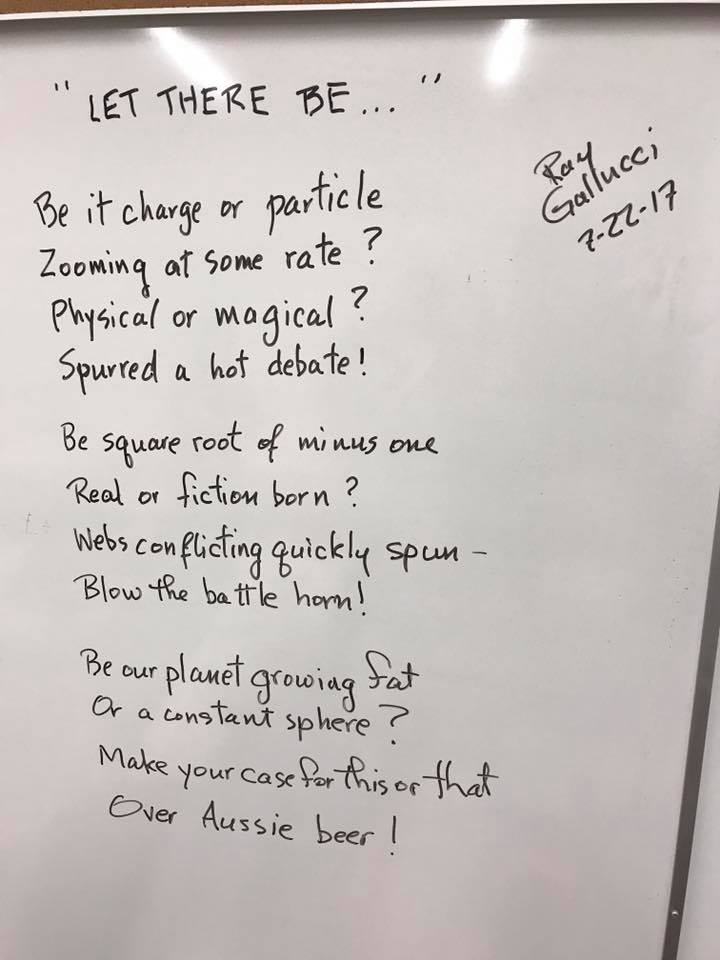 "LET THERE BE..."
Ray
Gallucci
7-22-17
Be it charge or particle
Zooming at some rate?
Physical or magical?
Spurred a hot debate!
Be square root of minus one
Real or fiction born?
Webs conflicting quickly spun -
Blow the battle horn!
Be our planet growing fat
Or a constant sphere?
Make your case for this or that
Over Aussie beer!